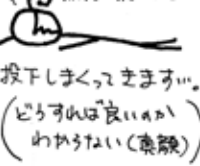 投下しまくってきますッ…。
（どうすれば良いのか
わからない（真顔）